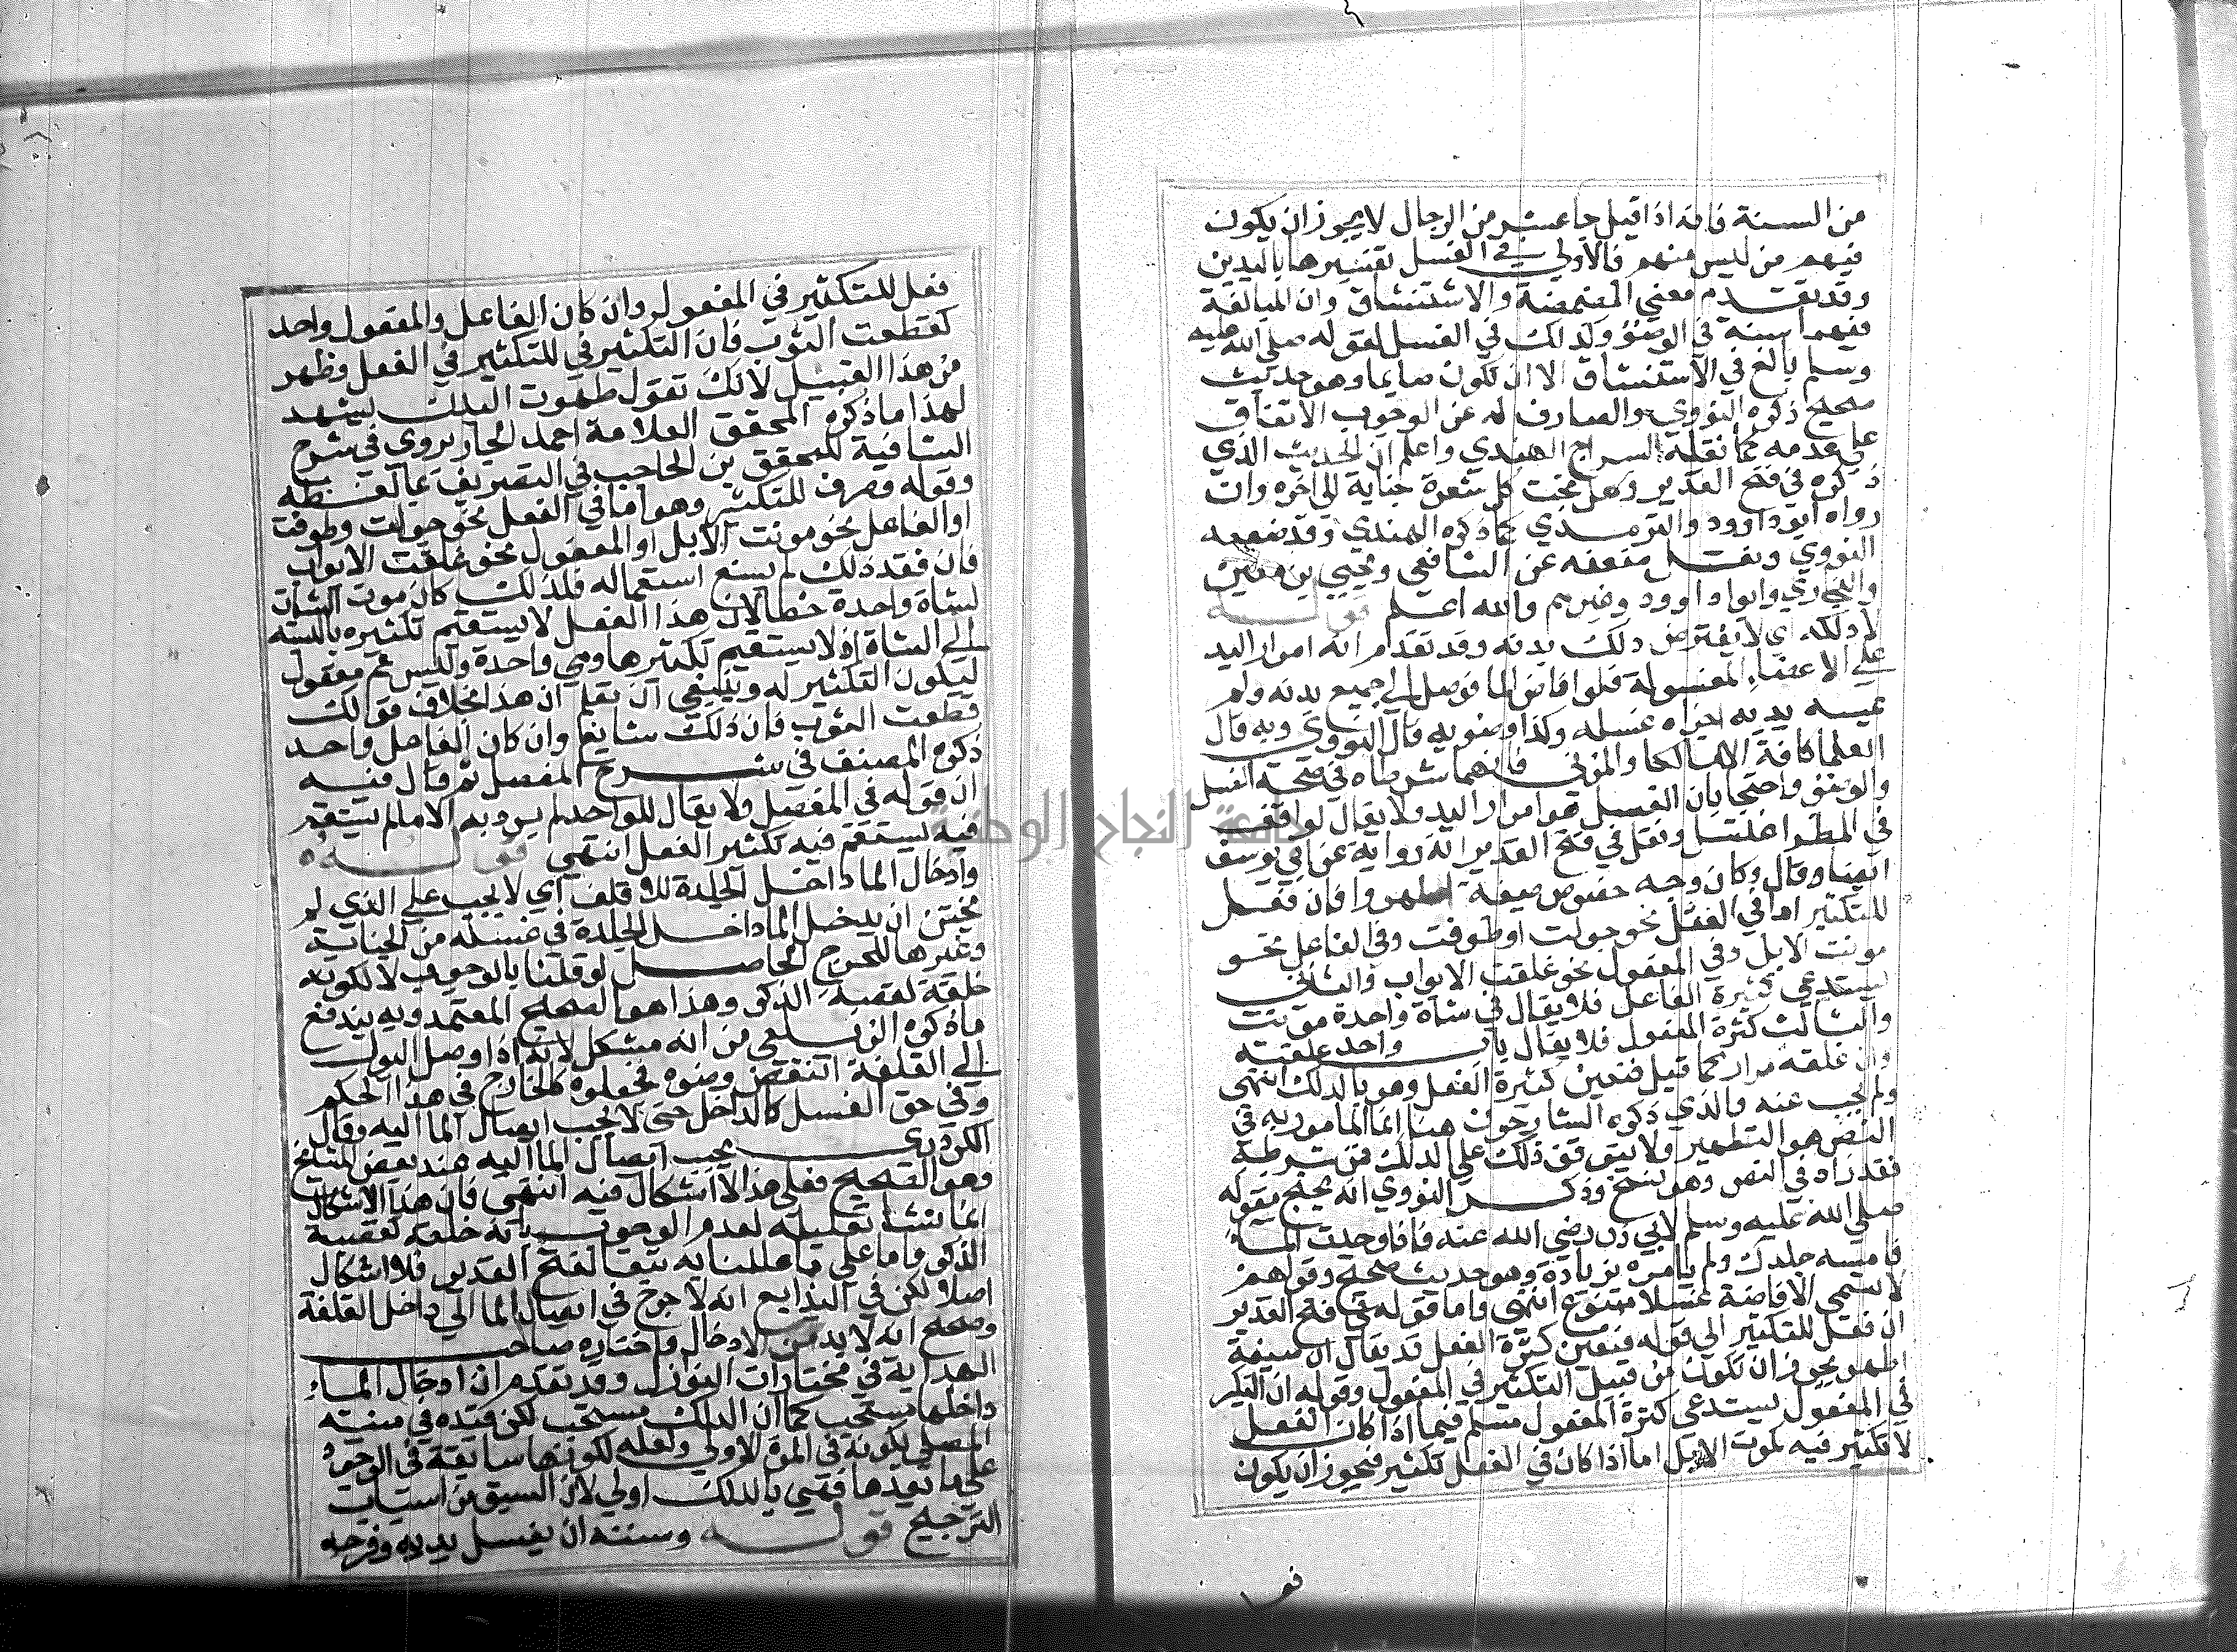 من السنة فانه اذا قيل جا عشر من الرجال لا يجوز ان يكون
فيهم من ليس منهم فالاولي في الغسل تفسيرها باليدين
وقد تقدم معني المضمضة والاستنشاق وان المبالغة
فيهما سنة في الوضوء وكذلك في الغسل لقوله صلي الله عليه
وسلم بالغ في الاستنشاق الا ان تكون صايما وهو حديث
صحيح ذكره النووي والصارف له عن الوجوب الاتفاق
علي عدمه كما نقله السراج الهندي واعلم ان الحديث الذي
ذكره في فتح القدير وهو تحت كل شعرة جنابة الي اخره وان
رواه ابو داوود والترمذي كما ذكره الهندي وقد ضعفه
النووي ونقل ضعفه عن الشافعي ويحيي بن معين
والبخاري وابو داوود وغيرهم والله اعلم قولـه
لا دلكه اي لا يفترض دلك بدنه وقد تقدم انه امرار اليد
علي الاعضاء المغسولة فلو افاض الما فوصل الي جميع بدنه ولم
يمسه بيديه اجزاه غسله وكذا وضوءه قال النووي وبه قال
العلما كافة الا مالكا والمزني فانهما شرطاه في صحة الغسل
والوضو واحتجا بان الغسل هو امرار اليد ولا يقال لواقف
في المطر اغتسل ونقل في فتح القدير انه رواية عن ابي يوسف
ايضا وقال وكان وجه خصوص صيغة اطهروا فان فعل
للتكثير اما في الفعل نحو جولت وطوفت وفي الفاعل نحو
موتت الابل وفي المفعول نحو غلقت الابواب والثاني
يستدعي كثرة الفاعل فلا يقال في شاة واحدة موتت
والثالث كثرة المفعول فلا يقال باب واحد غلقته
وان غلقه مرارا كما قيل فتعين كثرة الفعل وهو بالدلك انتهى
ولم يجب عنه والذي ذكره الشارحون هنا انما المامور به في
النص هو التطهير ولا يتوقف ذلك علي الدلك فمن شرطه
فقد زاد في النص وهو نسخ وذكر النووي انه يحتج بقوله
صلي الله عليه وسلم لابي ذر رضي الله عنه فاذا وجدت الماء
فامسه جلدك ولم يامره بزيادة وهو حديث صحيح وقولهم
لا تسمي الافاضة غسلا ممنوع انتهى واما قوله في فتح القدير
ان فعل للتكثير الي قوله فتعين كثرة الفعل قد يقال ان صيغة
اطهر يجوز ان تكون من قبيل التكثير في المفعول وقوله ان التكثير
في المفعول يستدعي كثرة المفعول مسلم فيما اذا كان الفعل
لا تكثير فيه كموت الابل اما اذا كان في الفعل تكثير فيجوز ان يكون
فعل
فعل للتكثير في المفعول وان كان الفاعل والمفعول واحد
كقطعت الثوب فان التكثير في للتكثير في الفعل وظهر
من هذا القبيل لانك تقول طهرت البدن يشهد
لهذا ما ذكره المحقق العلامة احمد الجاربردي في شرح
الشافية للمحقق بن الحاجب في التصريف بما لفظه
وقوله وصرف للتكثير وهو اما في الفعل نحو جولت وطوفت
او الفاعل نحو موتت الابل او المفعول نحو غلقت الابواب
فان فقد ذلك لم يسغ استعماله فلذلك كان موت الشاة
لشاة واحدة خطا لان هذا الفعل لا يستقيم تكثيره بالنسبة
الي الشاة اذ لا يستقيم تكثيرها وهي واحدة وليس ثم مفعول
ليكون التكثير له وينبغي ان يعلم ان هذا بخلاف قولك
قطعت الثوب فان ذلك شايع وان كان الفاعل واحد
ذكره المصنف في شرح المفصل ثم قال فيه
ان قوله في المفصل ولا يقال للواحد لم يرد به الا ما لم يستقم
فيه يستقم فيه تكثير الفعل انتهي قولـه
وادخال الما داخل الجلدة للاقلف اي لا يجب علي الذي لم
يختتن ان يدخل الما داخل الجلدة في غسله من الجنابة
وغيرها للحرج الحاصل لو قلنا بالوجوب لا لكونه
خلقة كقصبة الذكر وهذا هو الصحيح المعتمد وبه يندفع
ما ذكره الزيلعي من انه مشكل لانه اذا وصل البول
الي القلفة انتقض وضوءه فجعلوه كالخارج في هذا الحكم
وفي حق الغسل كالداخل حتي لا يجب ايصال الما اليه وقال
الكردري يجب ايصال الما اليه عند بعض المشايخ
وهو الصحيح فعلي هذا لا اشكال فيه انتهي فان هذا الاشكال
انما نشا تعليله لعدم الوجوب بانه خلقة كقصبة
الذكر واما علي ما عللنا به تبعا لفتح القدير فلا اشكال
اصلا لكن في البدايع انه لا حرج في ايصال الما الي داخل القلفة
وصحح انه لا بد من الادخال واختاره صاحب
الهداية في مختارات النوازل وقد تقدم ان ادخال الماء
داخلها مستحب كما ان الدلك مستحب لكن قيده في منية
المصلي بكونه في المرة الاولي ولعله لكونها سابقة في الوجود
علي ما بعدها فهي بالدلك اولي لان السبق من اسباب
الترجيح قولـه وسننه ان يغسل يديه وفرجه
جامعة النجاح الوطنية